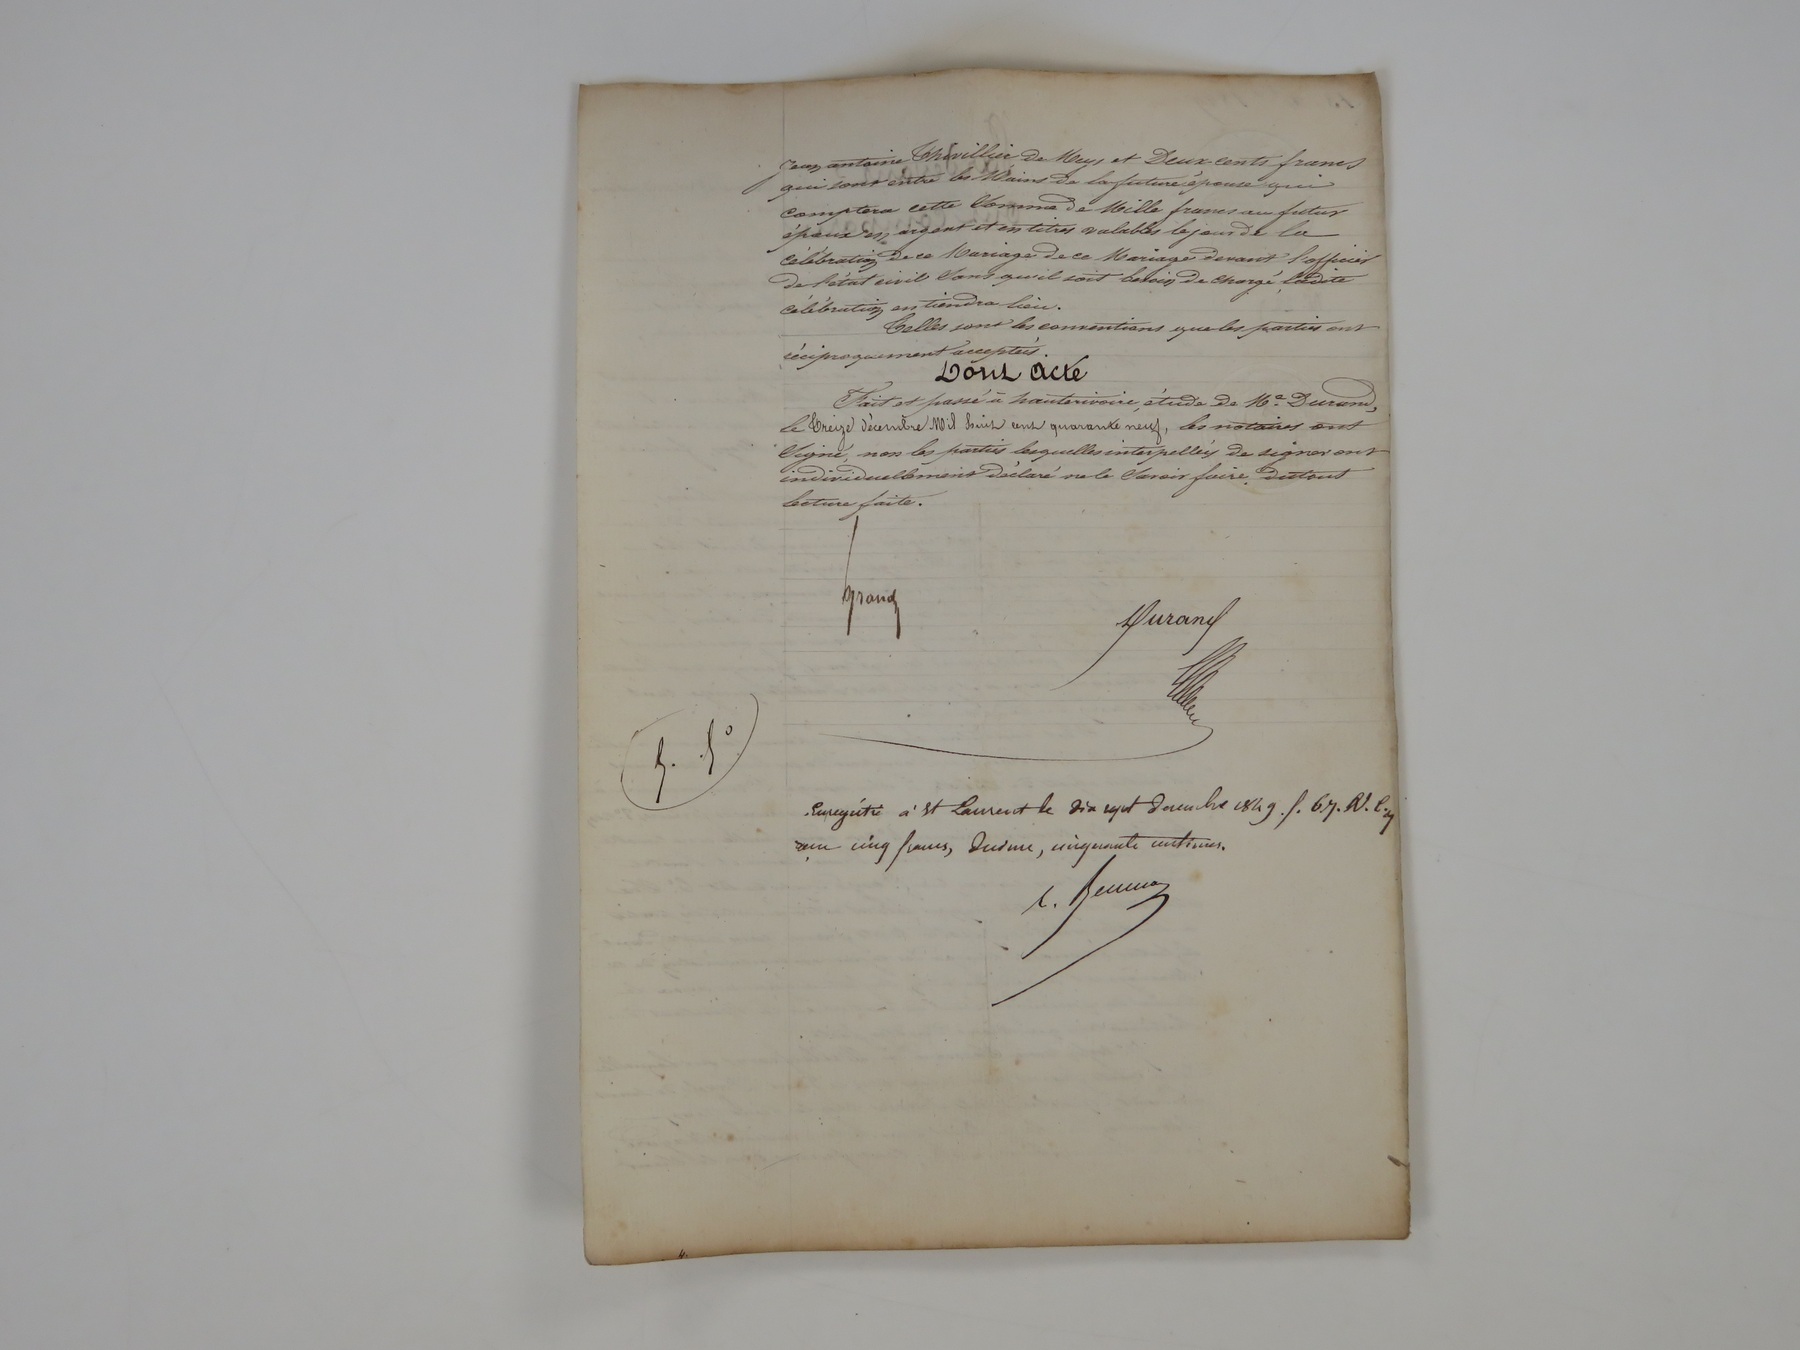 Jean antoine Thivillier de Meys et Deux cents francs
qui sont entre les Mains de la future épouse qui
comptera cette Somme de Mille francs au futur
époux en argent et en titres valables le jour de la
célébration de ce Mariage de ce Mariage devant l'officier
de l'état civil Sans qu'il soit besoin de charge, ladite
célébration en tiendra lieu.
Telles sont les conventions que les parties ont
réciproquement acceptées.
Dont Acte
Fait et passé à hauterivoire, étude de Me. Durand,
le Treize décembre Mil huit cent quarante neuf, les notaires ont
Signé, non les parties lesquelles interpellées de signer ont
individuellement déclaré ne le Savoir faire, du tout
lecture faite.
grand
Durand
Enregistré à St Laurent le dix sept decembre 1849. f. 67. V. C. 7
cinq francs, decime, cinquante centimes.